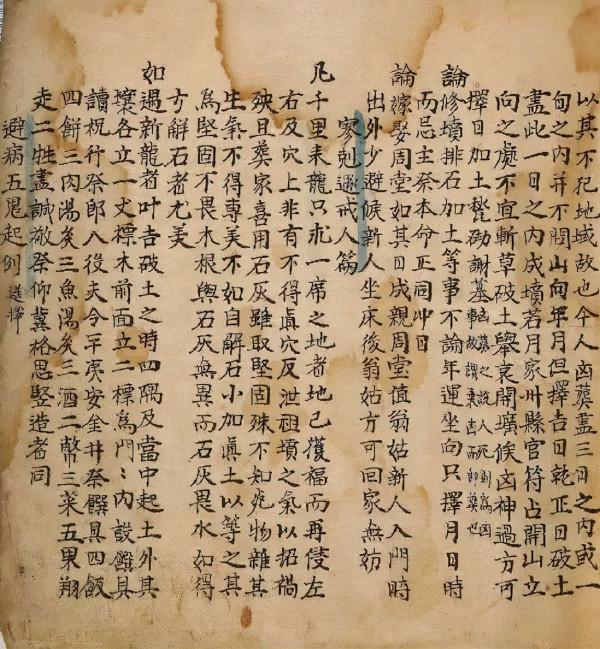 以其不犯地域故也今人凶葬盡三日之內或一
旬之內并不問山向年月但擇吉日乾正日破土
盡此一日之內成墳若月家州縣官符占開山立
向之處不宜斬草破土舉哀開壙候凶神過方可
擇日加土甃砌謝墓
論修墳排石加土等事不論年運坐向只擇月日時
而忌主祭本命正同冲日
論嫁娶周堂如其日成親周堂值翁姑新人入門時
出外少避候新人坐床後翁姑方可回家無妨
家剋避戒人篇
凡千里来龍只求一席之地者地已獲福而再侵左
右及穴上非有不得眞穴反泄祖墳之氣以招禍
殃且葬家喜用石灰雖取堅固殊不知死物雜其
生氣不得專美不如自解石小加眞土以等之其
爲堅固不畏木根與石灰無異而石灰畏水如得
方解石者尤美
如遇新龍者叶吉破土之時四隅及當中起土外其
壤各立一丈標木前面立二標爲門〻內設饌具
讀祝行祭郎八役夫令平
安金井祭饌具四飯
四餅三肉湯炙三魚湯炙三酒二幣三菜五果翔
走二牲盡誠敬祭仰冀格思竪造者同
避病五鬼起例 選擇